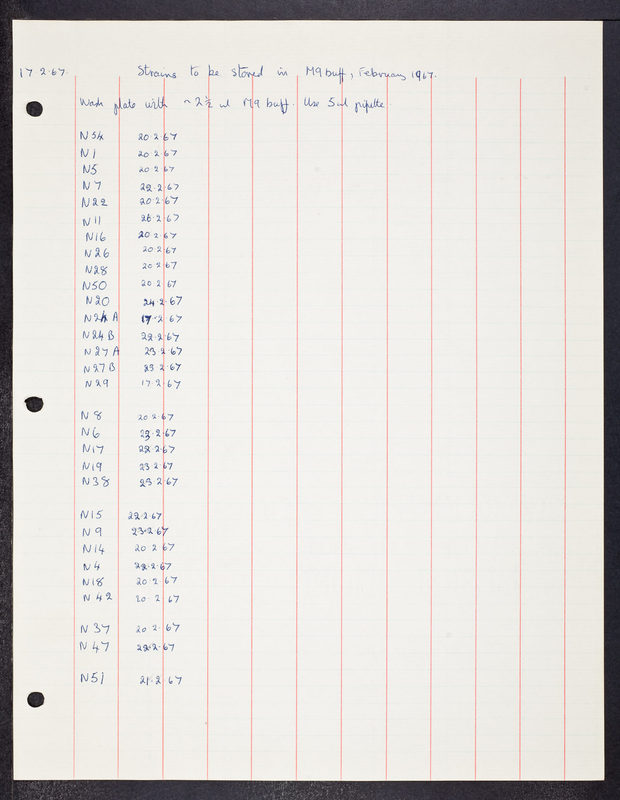 17.2.67. Strains to be stored in M9 buff, February 1967.
Wash plate with ~ 2½ ml M9 buff. Use 5ml pipette.
N54 20.2.67
N1 20.2.67
N5 20.2.67
N7 22.2.67
N22 20.2.67
N11 26.2.67
N16 20.2.67
N26 20.2.67
N28 20.2.67
N50 20.2.67
N20 24.2.67
N24A 17.2.67
N24B 22.2.67
N27A 23.2.67
N27B 23.2.67
N29 17.2.67
N8 20.2.67
N6 23.2.67
N17 22.2.67
N19 23.2.67
N38 23.2.67
N15 22.2.67
N9 23.2.67
N14 20.2.67
N4 22.2.67
N18 20.2.67
N42 20.2.67
N37 20.2.67
N47 22.2.67
N51 21.2.67